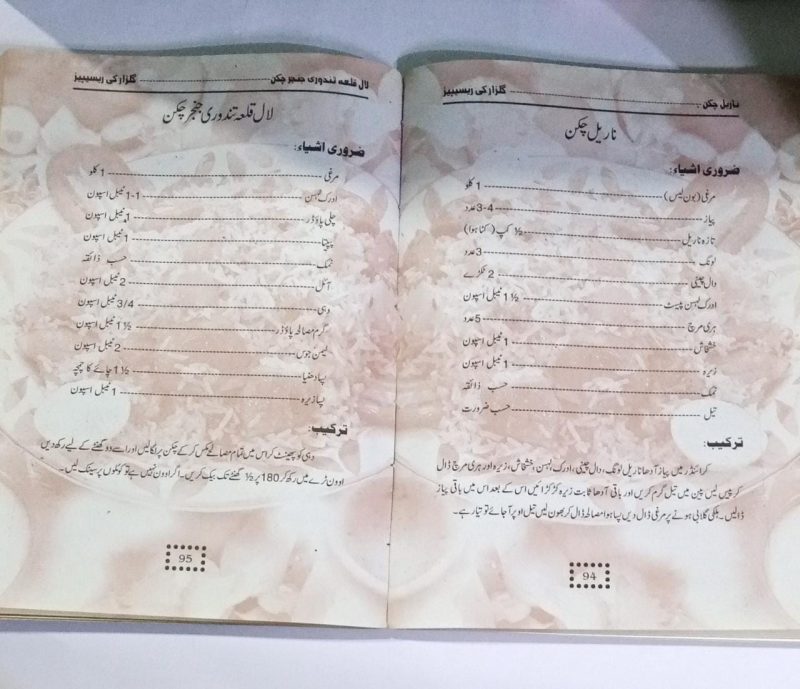 ناریل چکن ---------------------------------------- گلزار کی ریسیپیز
ناریل چکن
ضروری اشیاء:
مرغی (بون لیس) ---------------------------------------- 1 کلو
پیاز ---------------------------------------- 3-4 عدد
تازہ ناریل ---------------------------------------- ½ کپ (کٹا ہوا)
لونگ ---------------------------------------- 3 عدد
دال چینی ---------------------------------------- 2 ٹکڑے
ادرک لہسن پیسٹ ---------------------------------------- 1½ ٹیبل اسپون
ہری مرچ ---------------------------------------- 5 عدد
خشخاش ---------------------------------------- 1 ٹیبل اسپون
زیرہ ---------------------------------------- 1 ٹیبل اسپون
نمک ---------------------------------------- حسب ذائقہ
تیل ---------------------------------------- حسب ضرورت
ترکیب:
گرائنڈر میں پیاز آدھا ناریل لونگ، دال چینی، ادرک، لہسن، خشخاش، زیرہ اور ہری مرچ ڈال
کر پیس لیں پین میں تیل گرم کریں اور باقی آدھا ثابت زیرہ کڑکڑائیں اس کے بعد اس میں باقی پیاز
ڈالیں۔ ہلکی گلابی ہونے پر مرغی ڈال دیں پسا ہوا مصالحہ ڈال کر بھون لیں تیل اوپر آجائے تو تیار ہے۔
94
لال قلعہ تندوری جنجر چکن ---------------------------------------- گلزار کی ریسیپیز
لال قلعہ تندوری جنجر چکن
ضروری اشیاء:
مرغی ---------------------------------------- 1 کلو
ادرک لہسن ---------------------------------------- 1-1 ٹیبل اسپون
چلی پاؤڈر ---------------------------------------- 1 ٹیبل اسپون
پپیتا ---------------------------------------- 1 ٹیبل اسپون
نمک ---------------------------------------- حسب ذائقہ
آئل ---------------------------------------- 2 ٹیبل اسپون
دہی ---------------------------------------- 3/4 ٹیبل اسپون
گرم مصالحہ پاؤڈر ---------------------------------------- 1½ ٹیبل اسپون
لیمن جوس ---------------------------------------- 2 ٹیبل اسپون
پسا دھنیا ---------------------------------------- 1½ چائے کا چمچہ
پسا زیرہ ---------------------------------------- 1 ٹیبل اسپون
ترکیب:
دہی کو پھینٹ کر اس میں تمام مصالحے مکس کر کے چکن پر لگا لیں اور اسے دو گھنٹے کے لیے رکھ دیں
اوون ٹرے میں رکھ کر 180 پر ½ گھنٹے تک بیک کریں۔ اگر اوون نہیں ہے تو کوئلوں پر سینک لیں۔
95